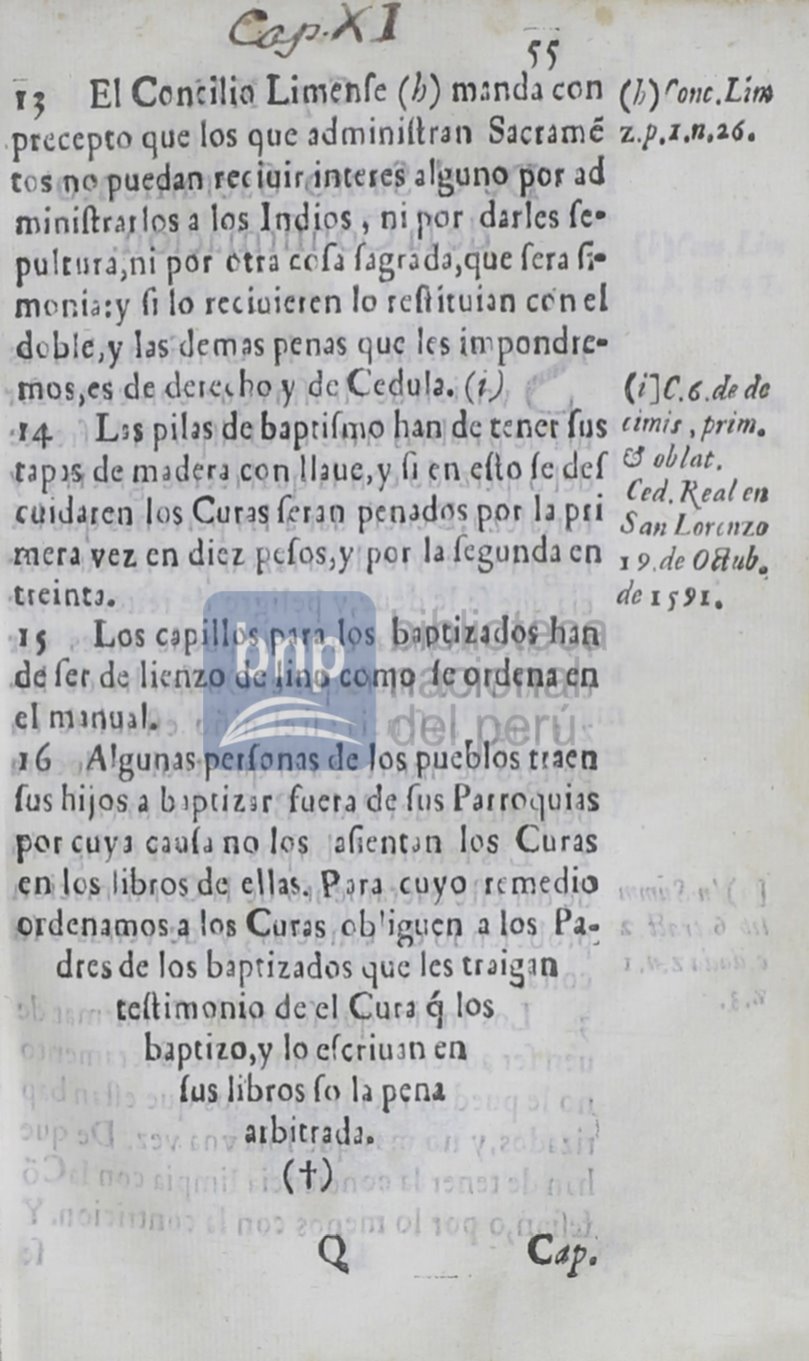 Cap. XI
55
13 El Concilio Limenſe (h) manda con
precepto que los que adminiſtran Sacramẽ
tos no puedan reciuir interes alguno por ad
miniſtrarlos a los Indios, ni por darles ſe-
pultura, ni por otra coſa ſagrada, que ſera ſi-
monia: y ſi lo reciuieren lo reſtituian con el
doble, y las demas penas que les impondre-
mos, es de derecho y de Cedula. (i)
14 Las pilas de baptiſmo han de tener ſus
tapas de madera con llaue, y ſi en eſto ſe deſ
cuidaren los Curas ſeran penados por la pri
mera vez en diez peſos, y por la ſegunda en
treinta.
15 Los capillos para los baptizados han
de ſer de lienzo de lino como ſe ordena en
el manual.
16 Algunas perſonas de los pueblos traen
ſus hijos a baptizar fuera de ſus Parroquias
por cuya cauſa no los aſientan los Curas
en los libros de ellas. Para cuyo remedio
ordenamos a los Curas obliguen a los Pa-
dres de los baptizados que les traigan
teſtimonio de el Cura q́ los
baptizo, y lo eſcriuan en
ſus libros ſo la pena
arbitrada.
(†)
Q Cap.
(h) Conc. Lim
2.p.1.n.26.
(i] C. 6. de de
cimis, prim.
& oblat.
Ced. Real en
San Lorenzo
19. de Octub.
de 1591.
bnp biblioteca
nacional
del perú